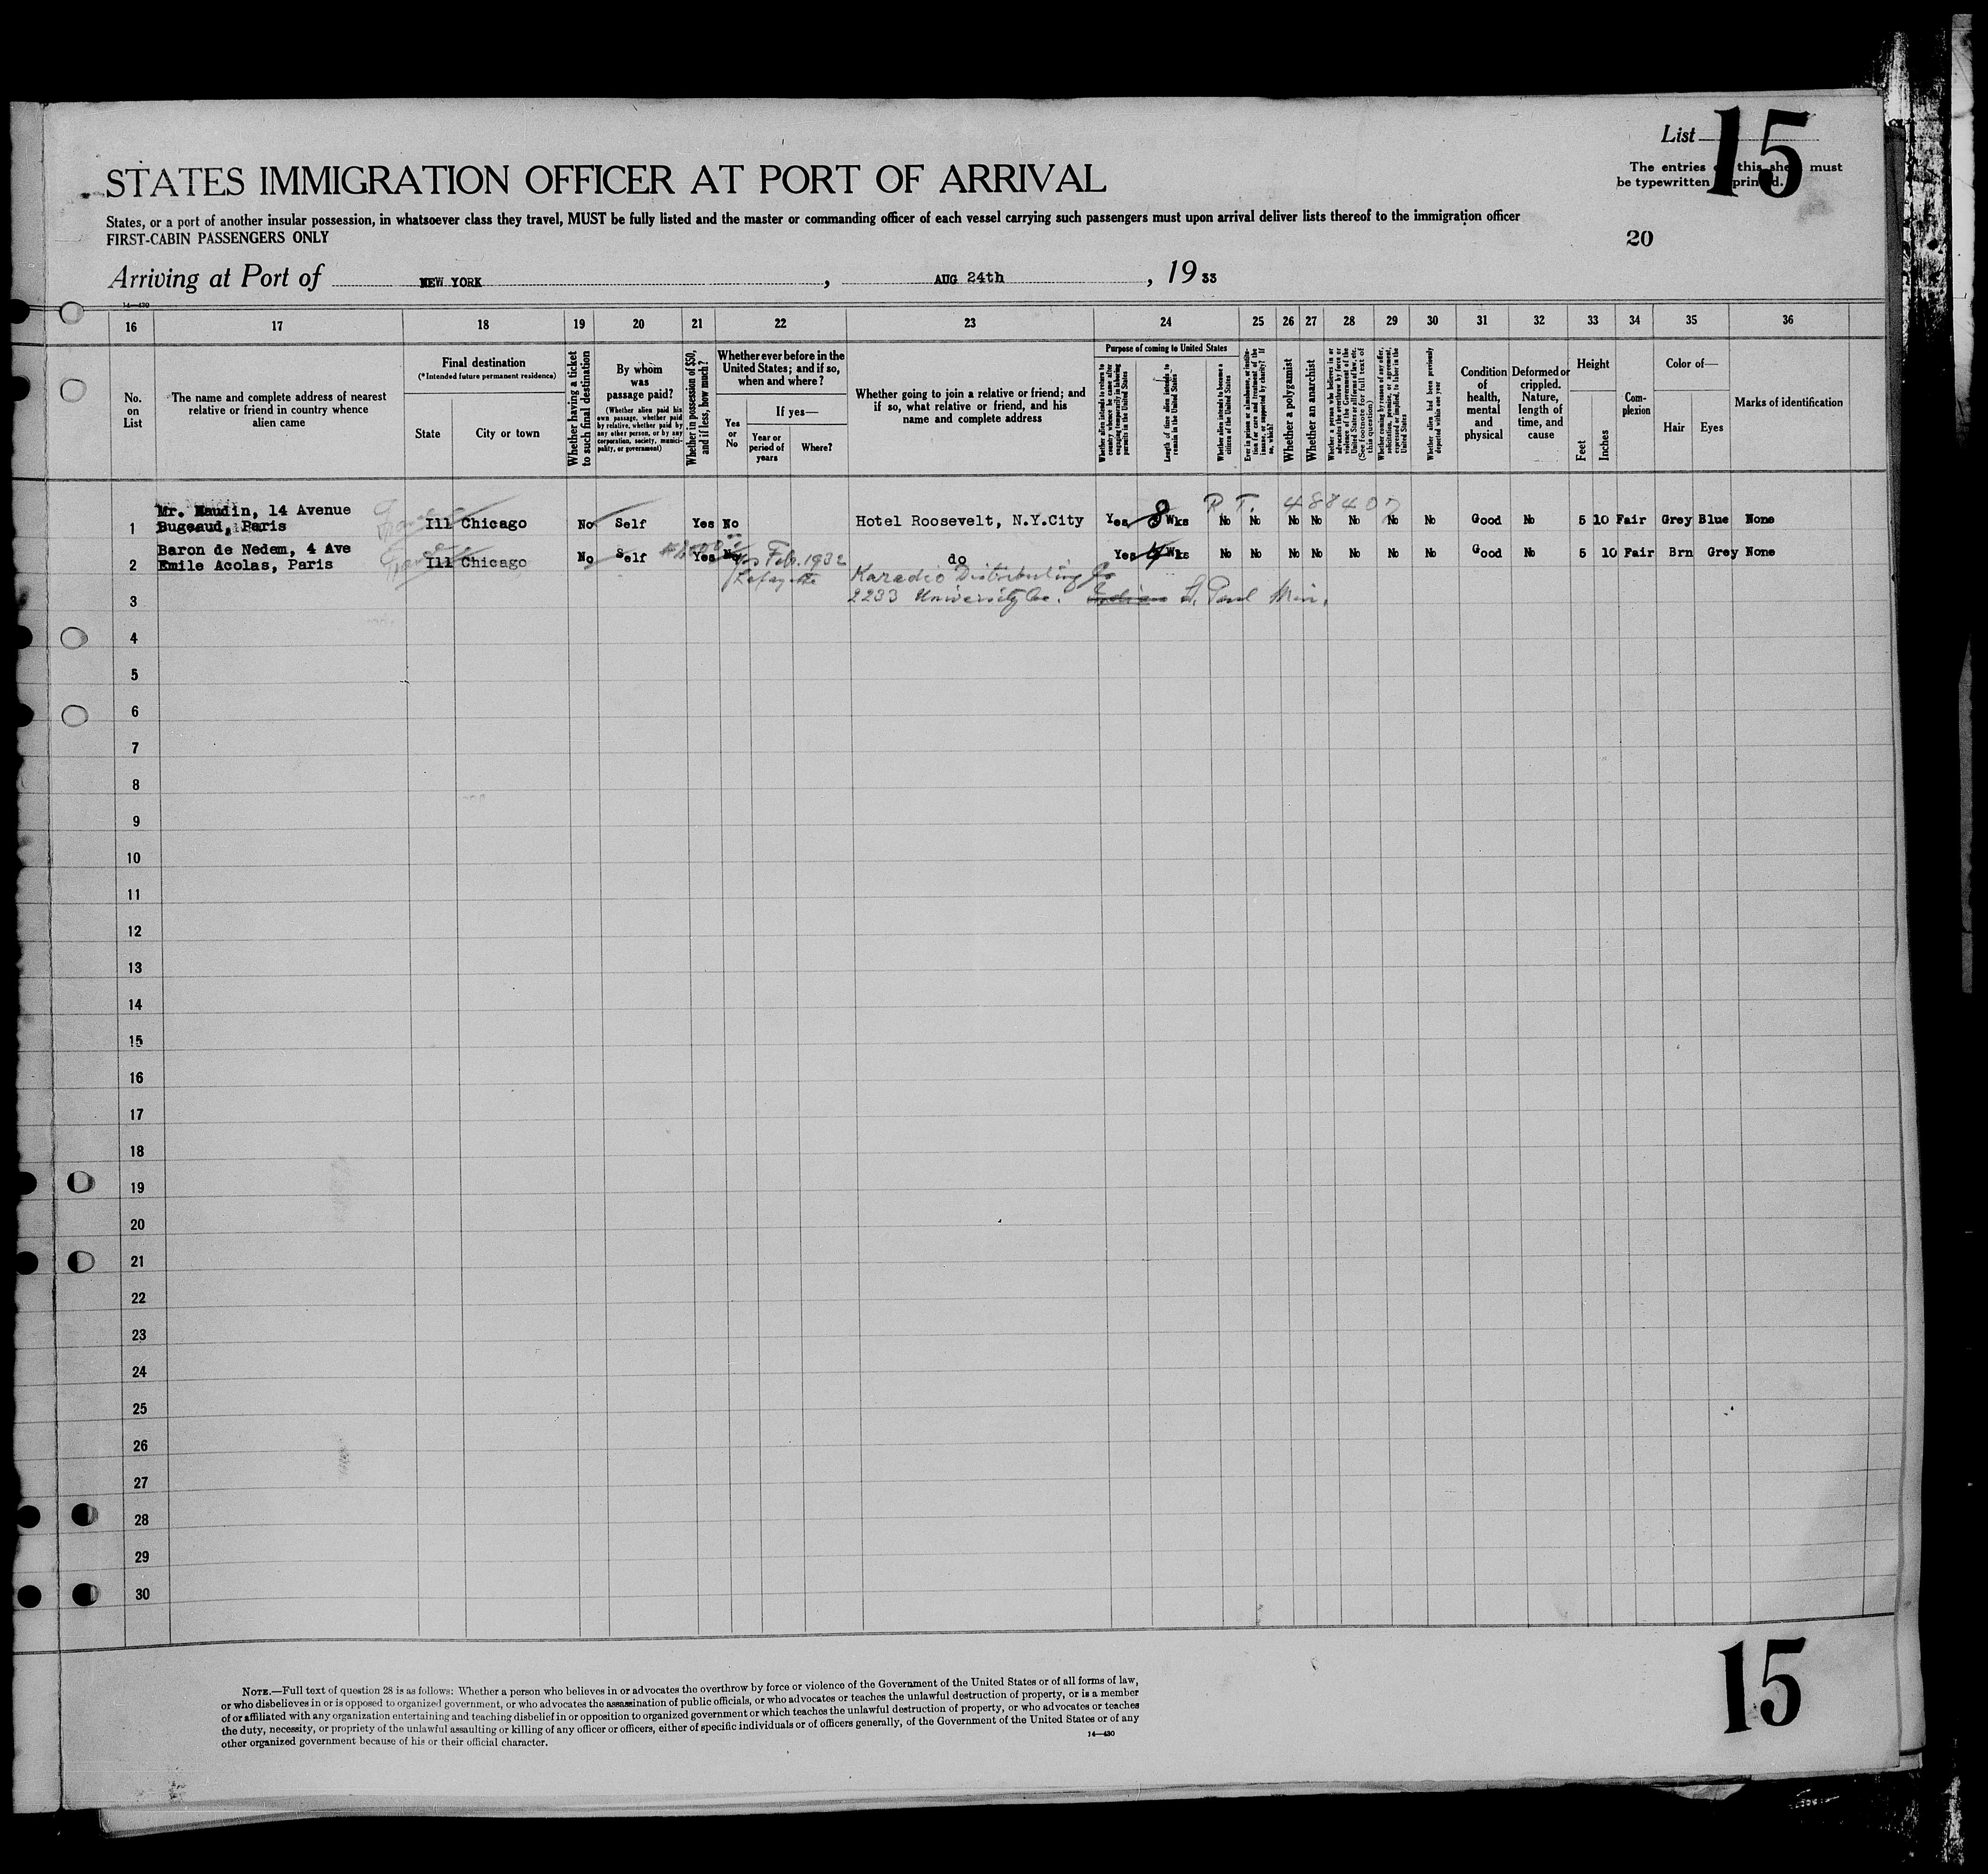 List 15
The entries on this sheet must
be typewritten or printed.
STATES IMMIGRATION OFFICER AT PORT OF ARRIVAL
States, or a port of another insular possession, in whatsoever class they travel, MUST be fully listed and the master or commanding officer of each vessel carrying such passengers must upon arrival deliver lists thereof to the immigration officer
FIRST-CABIN PASSENGERS ONLY
20
Arriving at Port of NEW YORK, AUG 24th, 19 33
14—430
16 17 18 19 20 21 22 23 24 25 26 27 28 29 30 31 32 33 34 35 36
No. on List
The name and complete address of nearest relative or friend in country whence alien came
Final destination
(*Intended future permanent residence)
State
City or town
Whether having a ticket to such final destination
By whom was passage paid?
(Whether alien paid his own passage, whether paid by relative, whether paid by any other person, or by any corporation, society, municipality, or government)
Whether in possession of $50, and if less, how much?
Whether ever before in the United States; and if so, when and where?
Yes or No
If yes—
Year or period of years
Where?
Whether going to join a relative or friend; and if so, what relative or friend, and his name and complete address
Purpose of coming to United States
Whether alien intends to return to country whence he came after engaging temporarily in laboring pursuits in the United States
Length of time alien intends to remain in the United States
Whether alien intends to become a citizen of the United States
Ever in prison or almshouse, or institution for care and treatment of the insane, or supported by charity? If so, which?
Whether a polygamist
Whether an anarchist
Whether a person who believes in or advocates the overthrow by force or violence of the Government of the United States or all forms of law, etc. (See footnote for full text of this question)
Whether coming by reason of any offer, solicitation, promise, or agreement, expressed or implied, to labor in the United States
Whether alien had been previously deported within one year
Condition of health, mental and physical
Deformed or crippled. Nature, length of time, and cause
Height
Feet
Inches
Complexion
Color of—
Hair
Eyes
Marks of identification
R. T. 488407
1 Mr. Naudin, 14 Avenue Bugeaud, Paris Ill Chicago No Self Yes No Hotel Roosevelt, N.Y.City Yes 8 Wks No No No No No No No Good No 5 10 Fair Grey Blue None
2 Baron de Nedem, 4 Ave Emile Acolas, Paris Ill Chicago No Self Yes No Yes Feb. 1932 Lafayette do Yes 4 Wks No No No No No No No Good No 5 10 Fair Brn Grey None
Karadio Distributing Co
3 2233 University Ave. St. Paul Min.
4
5
6
7
8
9
10
11
12
13
14
15
16
17
18
19
20
21
22
23
24
25
26
27
28
29
30
NOTE.—Full text of question 28 is as follows: Whether a person who believes in or advocates the overthrow by force or violence of the Government of the United States or of all forms of law,
or who disbelieves in or is opposed to organized government, or who advocates the assassination of public officials, or who advocates or teaches the unlawful destruction of property, or is a member
of or affiliated with any organization entertaining and teaching disbelief in or opposition to organized government or which teaches the unlawful destruction of property, or who advocates or teaches
the duty, necessity, or propriety of the unlawful assaulting or killing of any officer or officers, either of specific individuals or of officers generally, of the Government of the United States or of any
other organized government because of his or their official character.
14—430
15